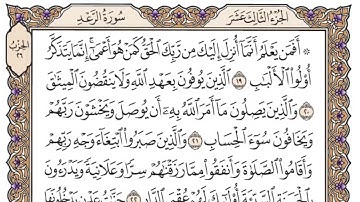 الجزء الثالث عشر
سورة الرعد
الحزب
٢٦
۞ أَفَمَن يَعْلَمُ أَنَّمَآ أُنزِلَ إِلَيْكَ مِن رَّبِّكَ ٱلْحَقُّ كَمَنْ هُوَ أَعْمَىٰٓ إِنَّمَا يَتَذَكَّرُ
أُو۟لُوا۟ ٱلْأَلْبَـٰبِ ١٩ ٱلَّذِينَ يُوفُونَ بِعَهْدِ ٱللَّهِ وَلَا يَنقُضُونَ ٱلْمِيثَـٰقَ
٢٠ وَٱلَّذِينَ يَصِلُونَ مَآ أَمَرَ ٱللَّهُ بِهِۦٓ أَن يُوصَلَ وَيَخْشَوْنَ رَبَّهُمْ
وَيَخَافُونَ سُوٓءَ ٱلْحِسَابِ ٢١ وَٱلَّذِينَ صَبَرُوا۟ ٱبْتِغَآءَ وَجْهِ رَبِّهِمْ
وَأَقَامُوا۟ ٱلصَّلَوٰةَ وَأَنفَقُوا۟ مِمَّا رَزَقْنَـٰهُمْ سِرًّا وَعَلَانِيَةً وَيَدْرَءُونَ
بِٱلْحَسَنَةِ ٱلسَّيِّئَةَ أُو۟لَـٰٓئِكَ لَهُمْ عُقْبَى ٱلدَّارِ ٢٢ جَنَّـٰتُ عَدْنٍ يَدْخُلُونَهَا